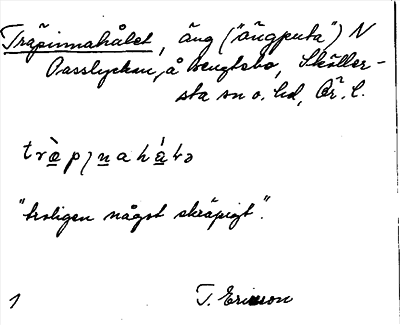 Träpinnahålet, äng ("ängputa") N
Passlyckan, å Bengtebo, Sköller-
sta sn o. hd, Ör. l.
"troligen något skräpigt".
1 T. Ericson